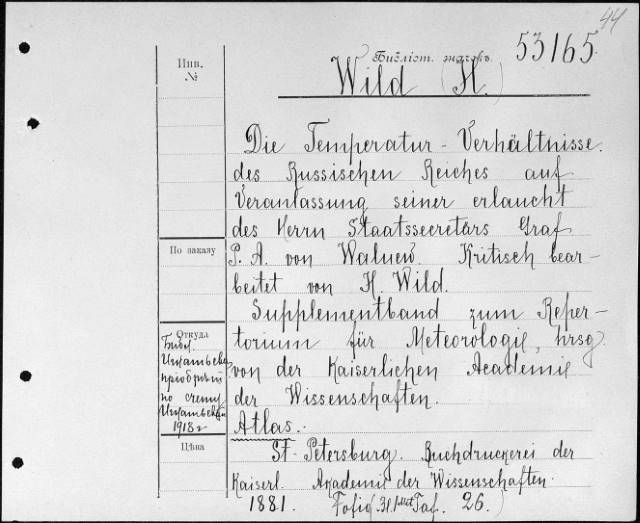 44
Инв.
№
Библіот. шагоръ.
53165
Wild (H.)
Die Temperatur-Verhältnisse.
des Russischen Reiches auf
Veranlassung seiner erlaucht
des Herrn Staatssecretärs Graf
По заказу
P. A. von Walnew. Kritisch bear-
beitet von H. Wild.
Supplementband zum Reper-
Откуда
torium für Meteorologie, hrsg.
von der Kaiserlichen Academie
der Wissenschaften.
Библ.
Игнатьева
пріобрѣт.
по счету
Игнатьева
1918 г
Atlas.
Цѣна
St. Petersburg. Buchdruckerei der
Kaiserl. Akademie der Wissenschaften.
1881. Taf. 26.)